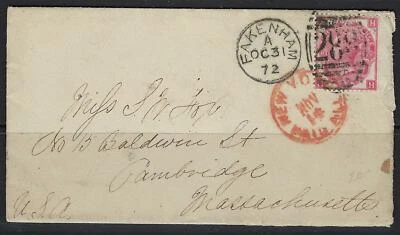 FAKENHAM
A
OC 31
72
NEW YORK
NOV
14
PAID ALL
H
H
Miss J. W. Fox
No 13 Baldwin St
Cambridge
Massachusetts
U.S.A